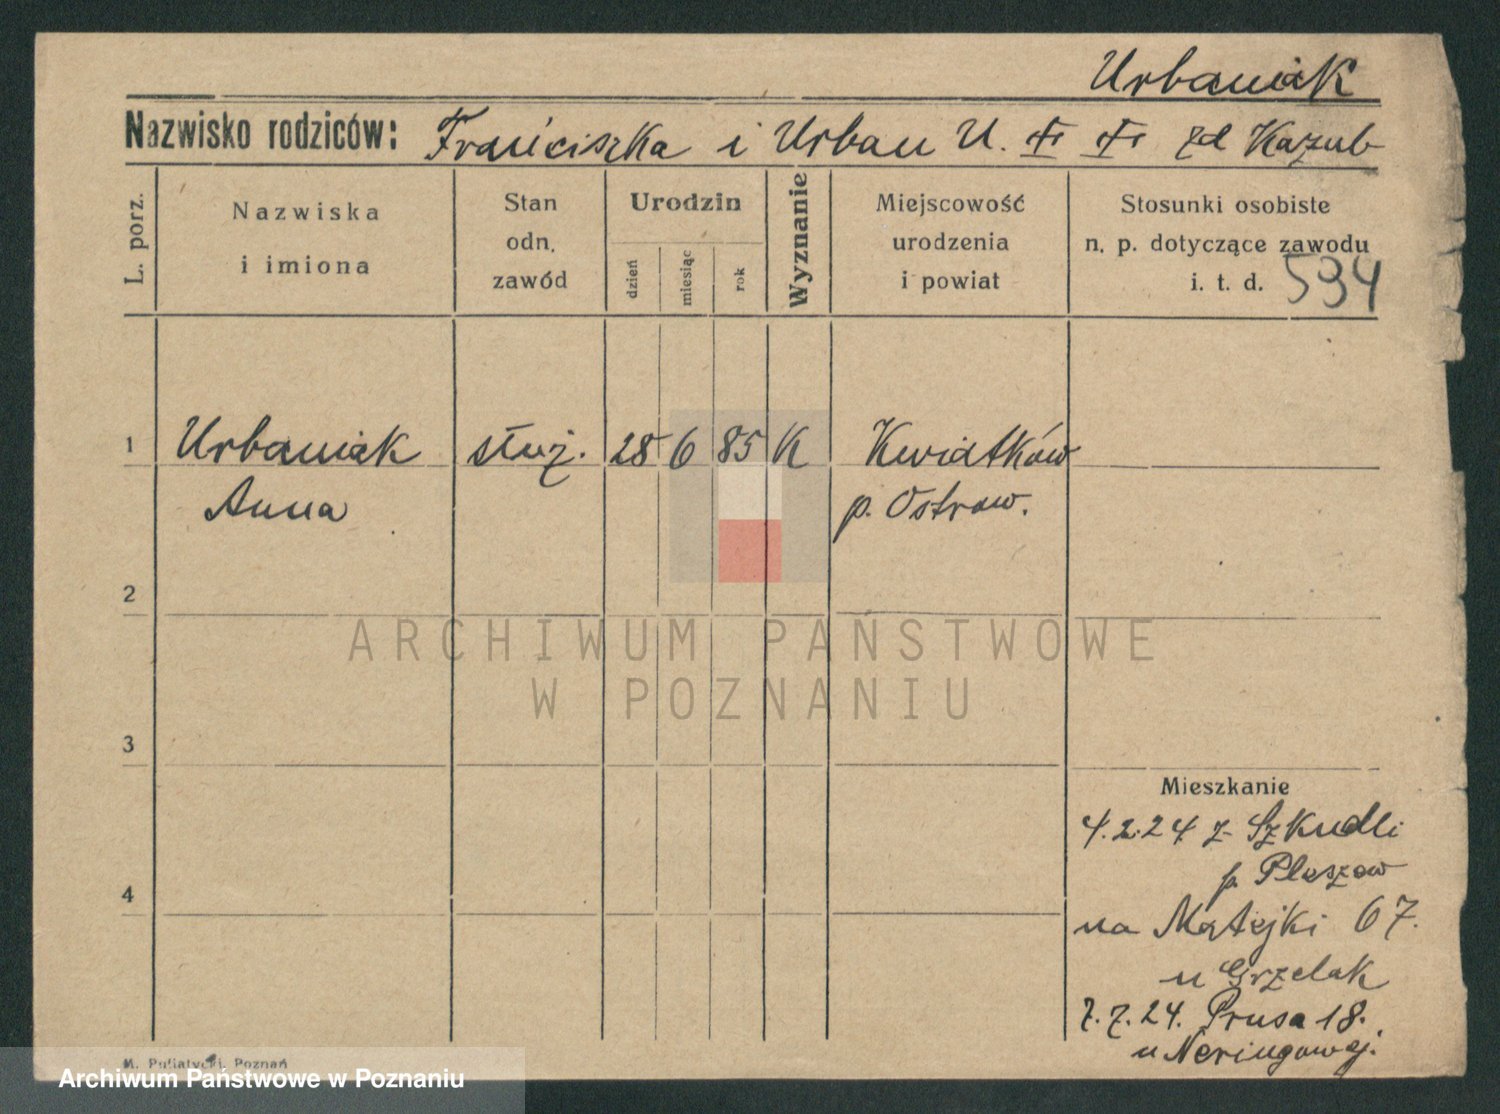 Urbaniak
Nazwisko rodziców: Franciszka i Urban U. zd Kazub
L. porz.
Nazwiska
i imiona
Stan
odn.
zawód
Urodzin
dzień
miesiąc
rok
Wyznanie
Miejscowość
urodzenia
i powiat
Stosunki osobiste
n. p. dotyczące zawodu
i. t. d. 594
1 Urbaniak służ. 28 6 85 K Kwiatków
Anna p. Ostrow.
2
3
4
ARCHIWUM PAŃSTWOWE
W POZNANIU
Mieszkanie
4.2.24 z Szkudli
p. Pleszew
na Matejki 67.
u Grzelak
7.7.24. Prusa 18.
u Neringowej.
M. Putiatycki, Poznań
Archiwum Państwowe w Poznaniu